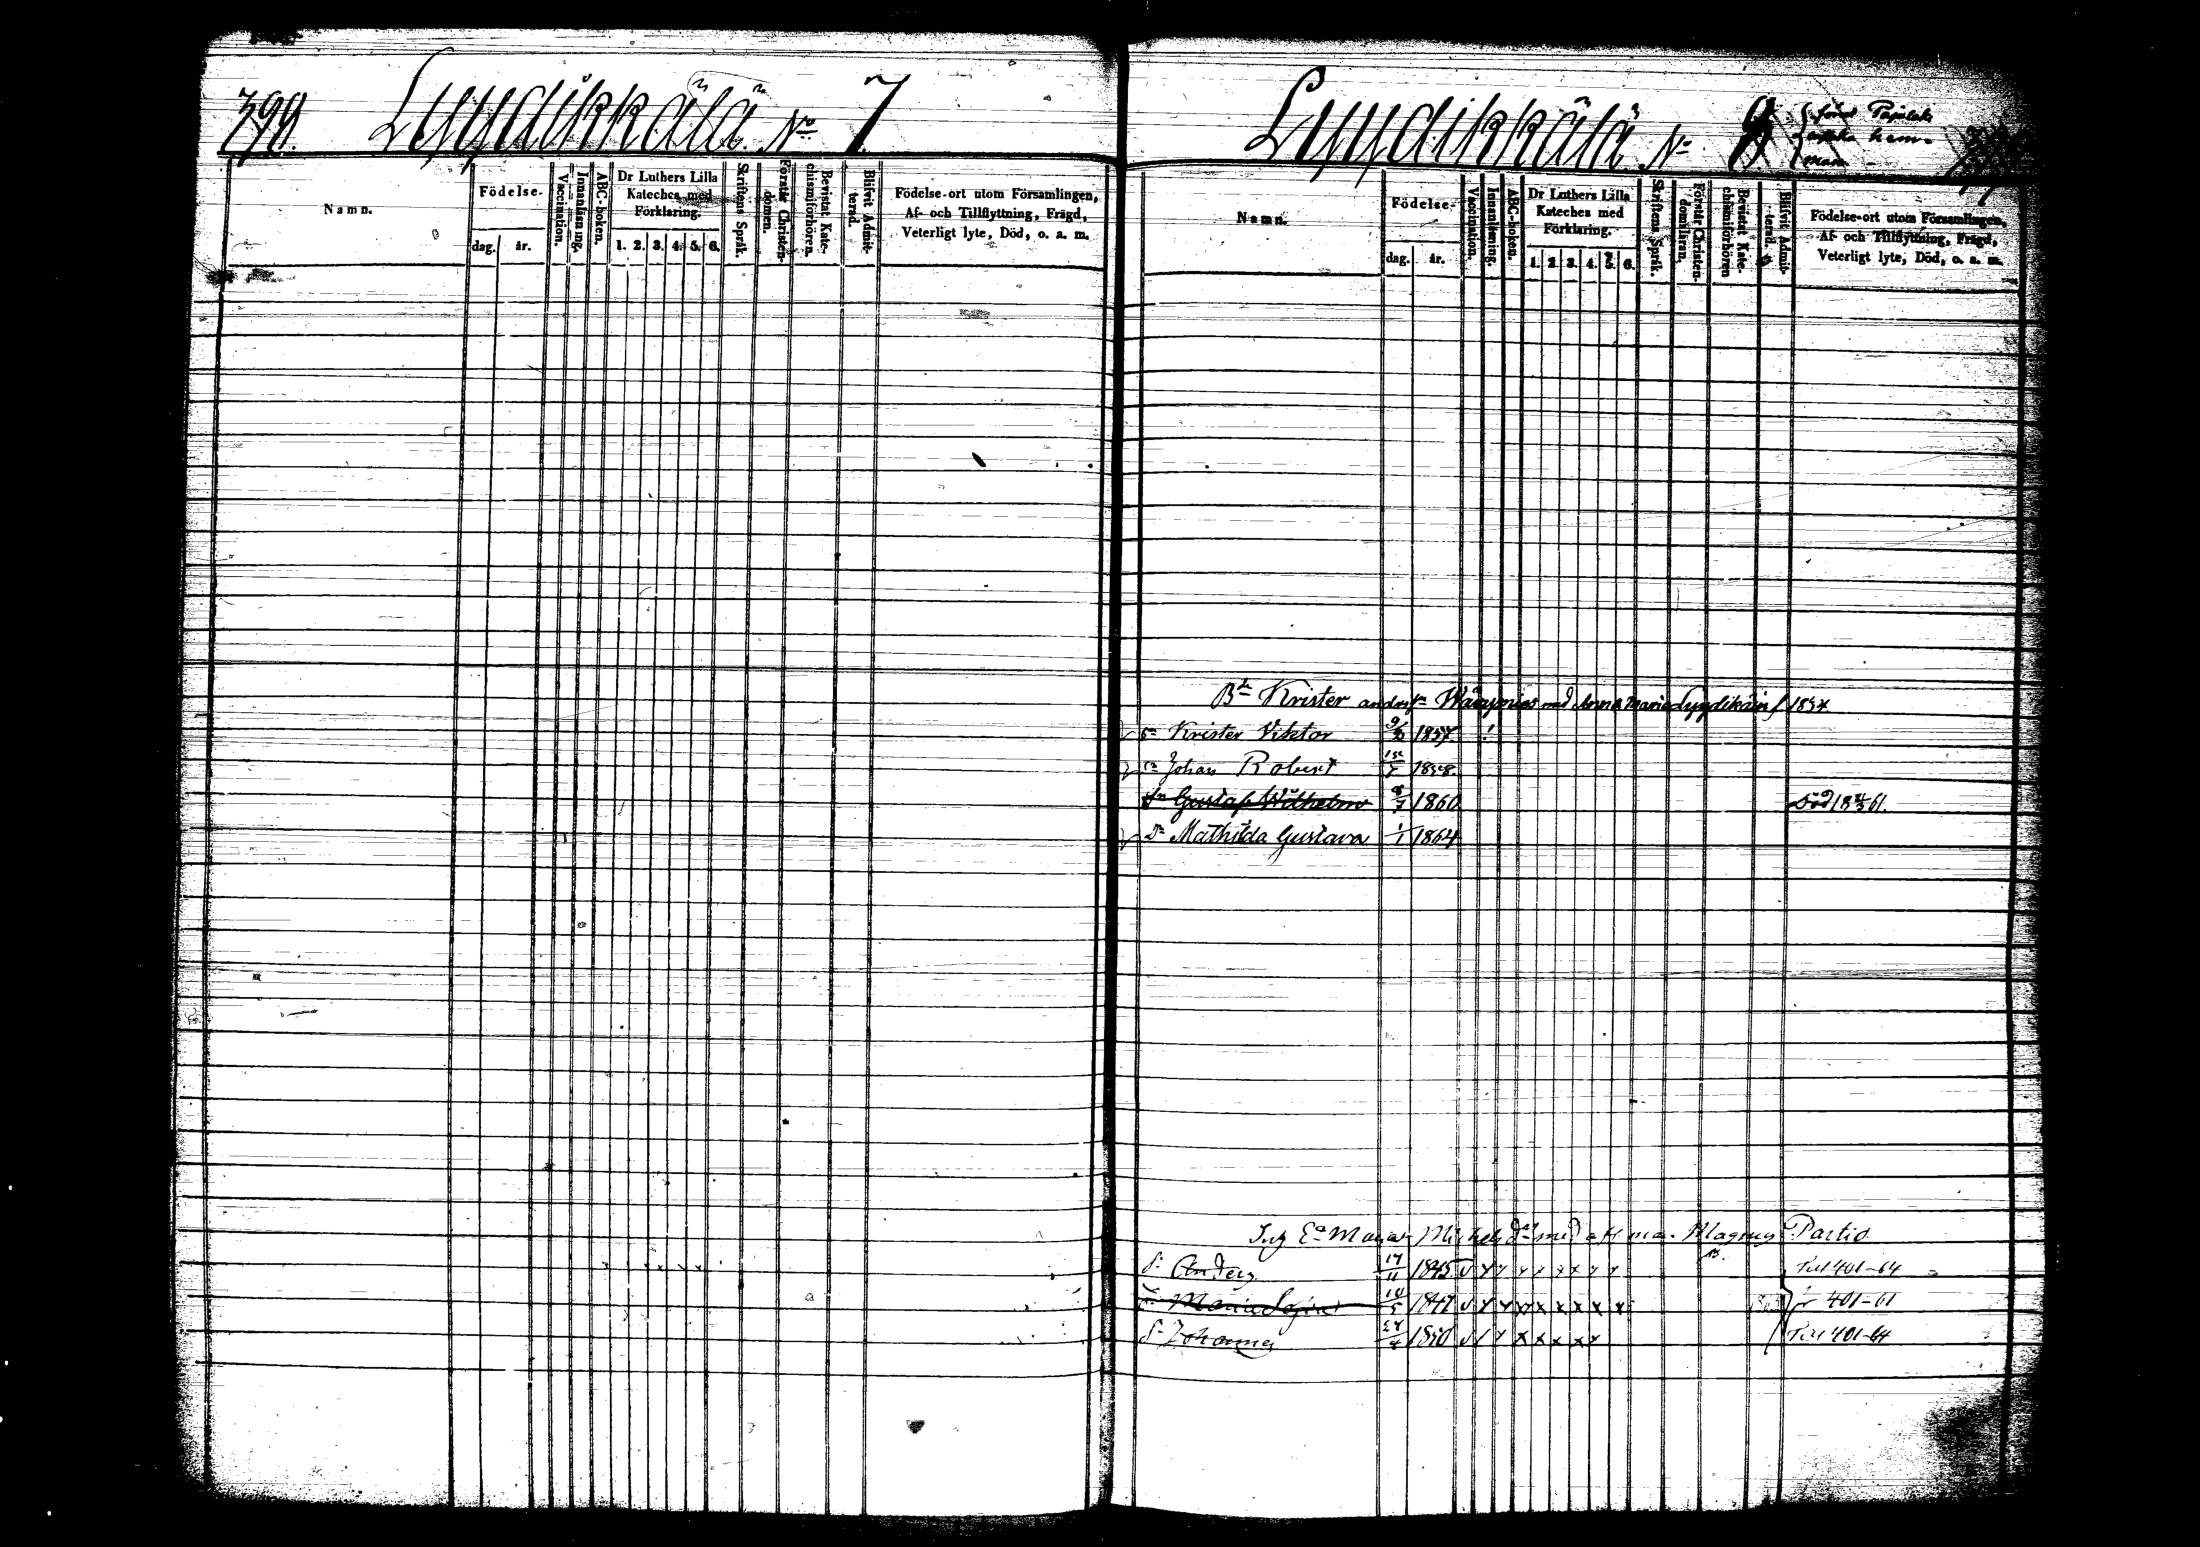 399. Lyydikkälä No 7
Namn.
Födelse-
dag. år.
Vaccination.
Innanläsning.
ABC-boken.
Dr Luthers Lilla
Kateches med
Förklaring.
1. 2. 3. 4. 5. 6.
Skriftens Språk.
Förstår Christen-
domen.
Bevistat Kate-
chismiförhören.
Blifvit Admit-
terad.
Födelse-ort utom Församlingen,
Af- och Tillflyttning, Frägd,
Veterligt lyte, Död, o. a. m.
Lyydikkälä No
Namn.
Födelse-
dag. år.
Vaccination.
Innanläsning.
ABC-boken.
Dr Luthers Lilla
Kateches med
Förklaring.
1. 2. 3. 4. 5. 6.
Skriftens Språk.
Förstår Christen-
domsläran.
Bevistat Kate-
chismiförhören
Blifvit Admit-
terad.
Födelse-ort utom Församlingen,
Af- och Tillflyttning, Frägd,
Veterligt lyte, Död, o. a. m.
Krister med Anna Maria
Sn Krister Viktor 1857.
Sn Johan Robert 1858.
Sn Gustaf Wilhelm 8/7 1860. Död 61.
Dr Mathilda Gustava 1/1 1864
Maria Magnus Partio
S. Anders 17/11 1845 Till 401-64
Maria Sofia 10/5 1847 401-61
S. Johannes 1850 Till 401-64